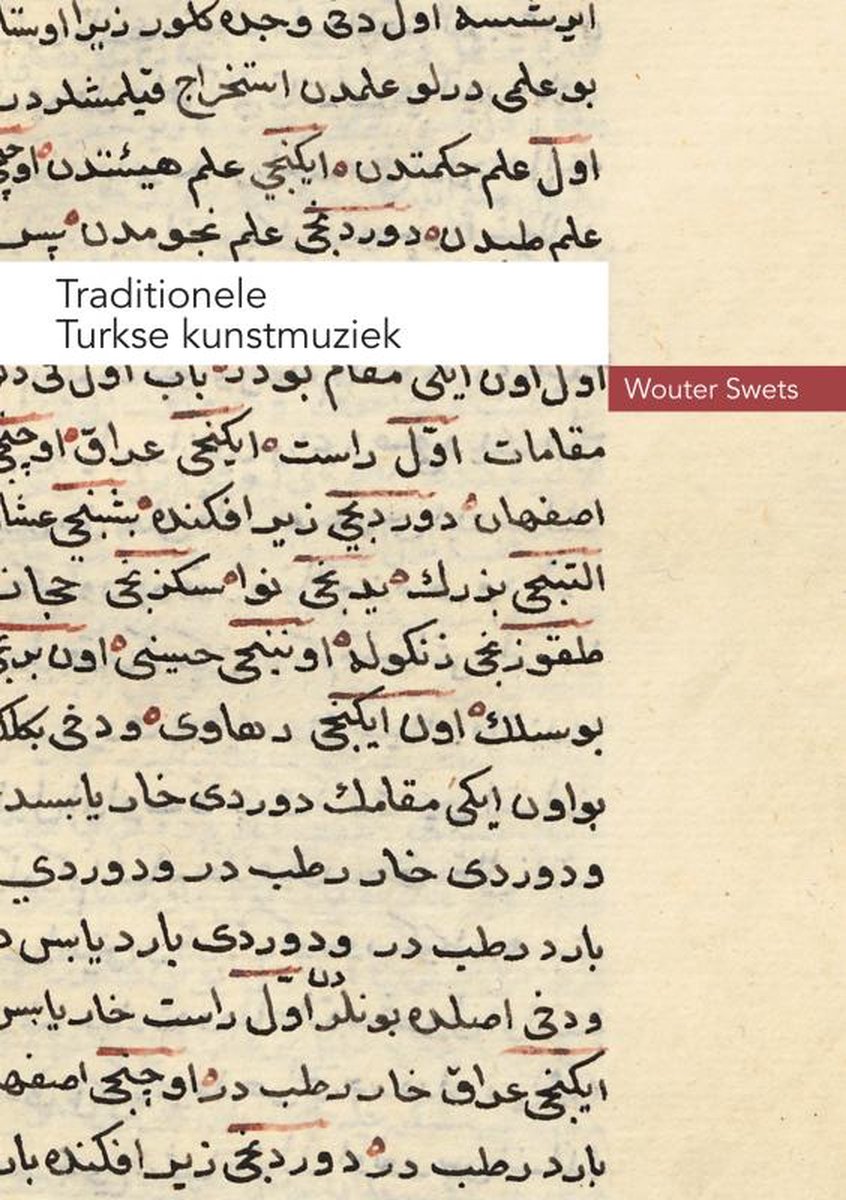 ایرشسه اول دخی وجده کلور زیرا اوستا
بو علمی درلو علمدن استخراج قیلمشلردر
اول علم حکمتدن ایکنجی علم هیئتدن اوچنجی
علم طبدن دوردنجی علم نجومدن پس
Traditionele
Turkse kunstmuziek
اول اون ایکی مقام بودر باب اول
Wouter Swets
مقامات اوّل راست ایکنجی عراق اوچنجی
اصفهان دوردنجی زیرافکنده بشنجی عشاق
التنجی بزرك یدنجی نوا سکزنجی حجاز
طقوزنجی زنکوله اوننجی حسینی اون برنجی
بوسلك اون ایکنجی رهاوی ودخی بکلك
بو اون ایکی مقامك دوردی خار یابسدر
ودوردی خار رطب در ودوردی
بارد رطب در ودوردی بارد یابس در
ودخی اصلده بونلردن اوّل راست خار یابس
ایکنجی عراق خار رطب در اوچنجی اصفهان
بارد رطب در دوردنجی زیرافکنده بارد